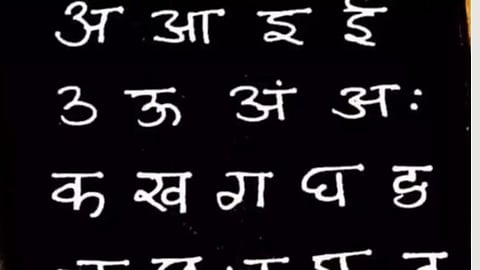 अ आ इ ई
उ ऊ अं अः
क ख ग घ ङ